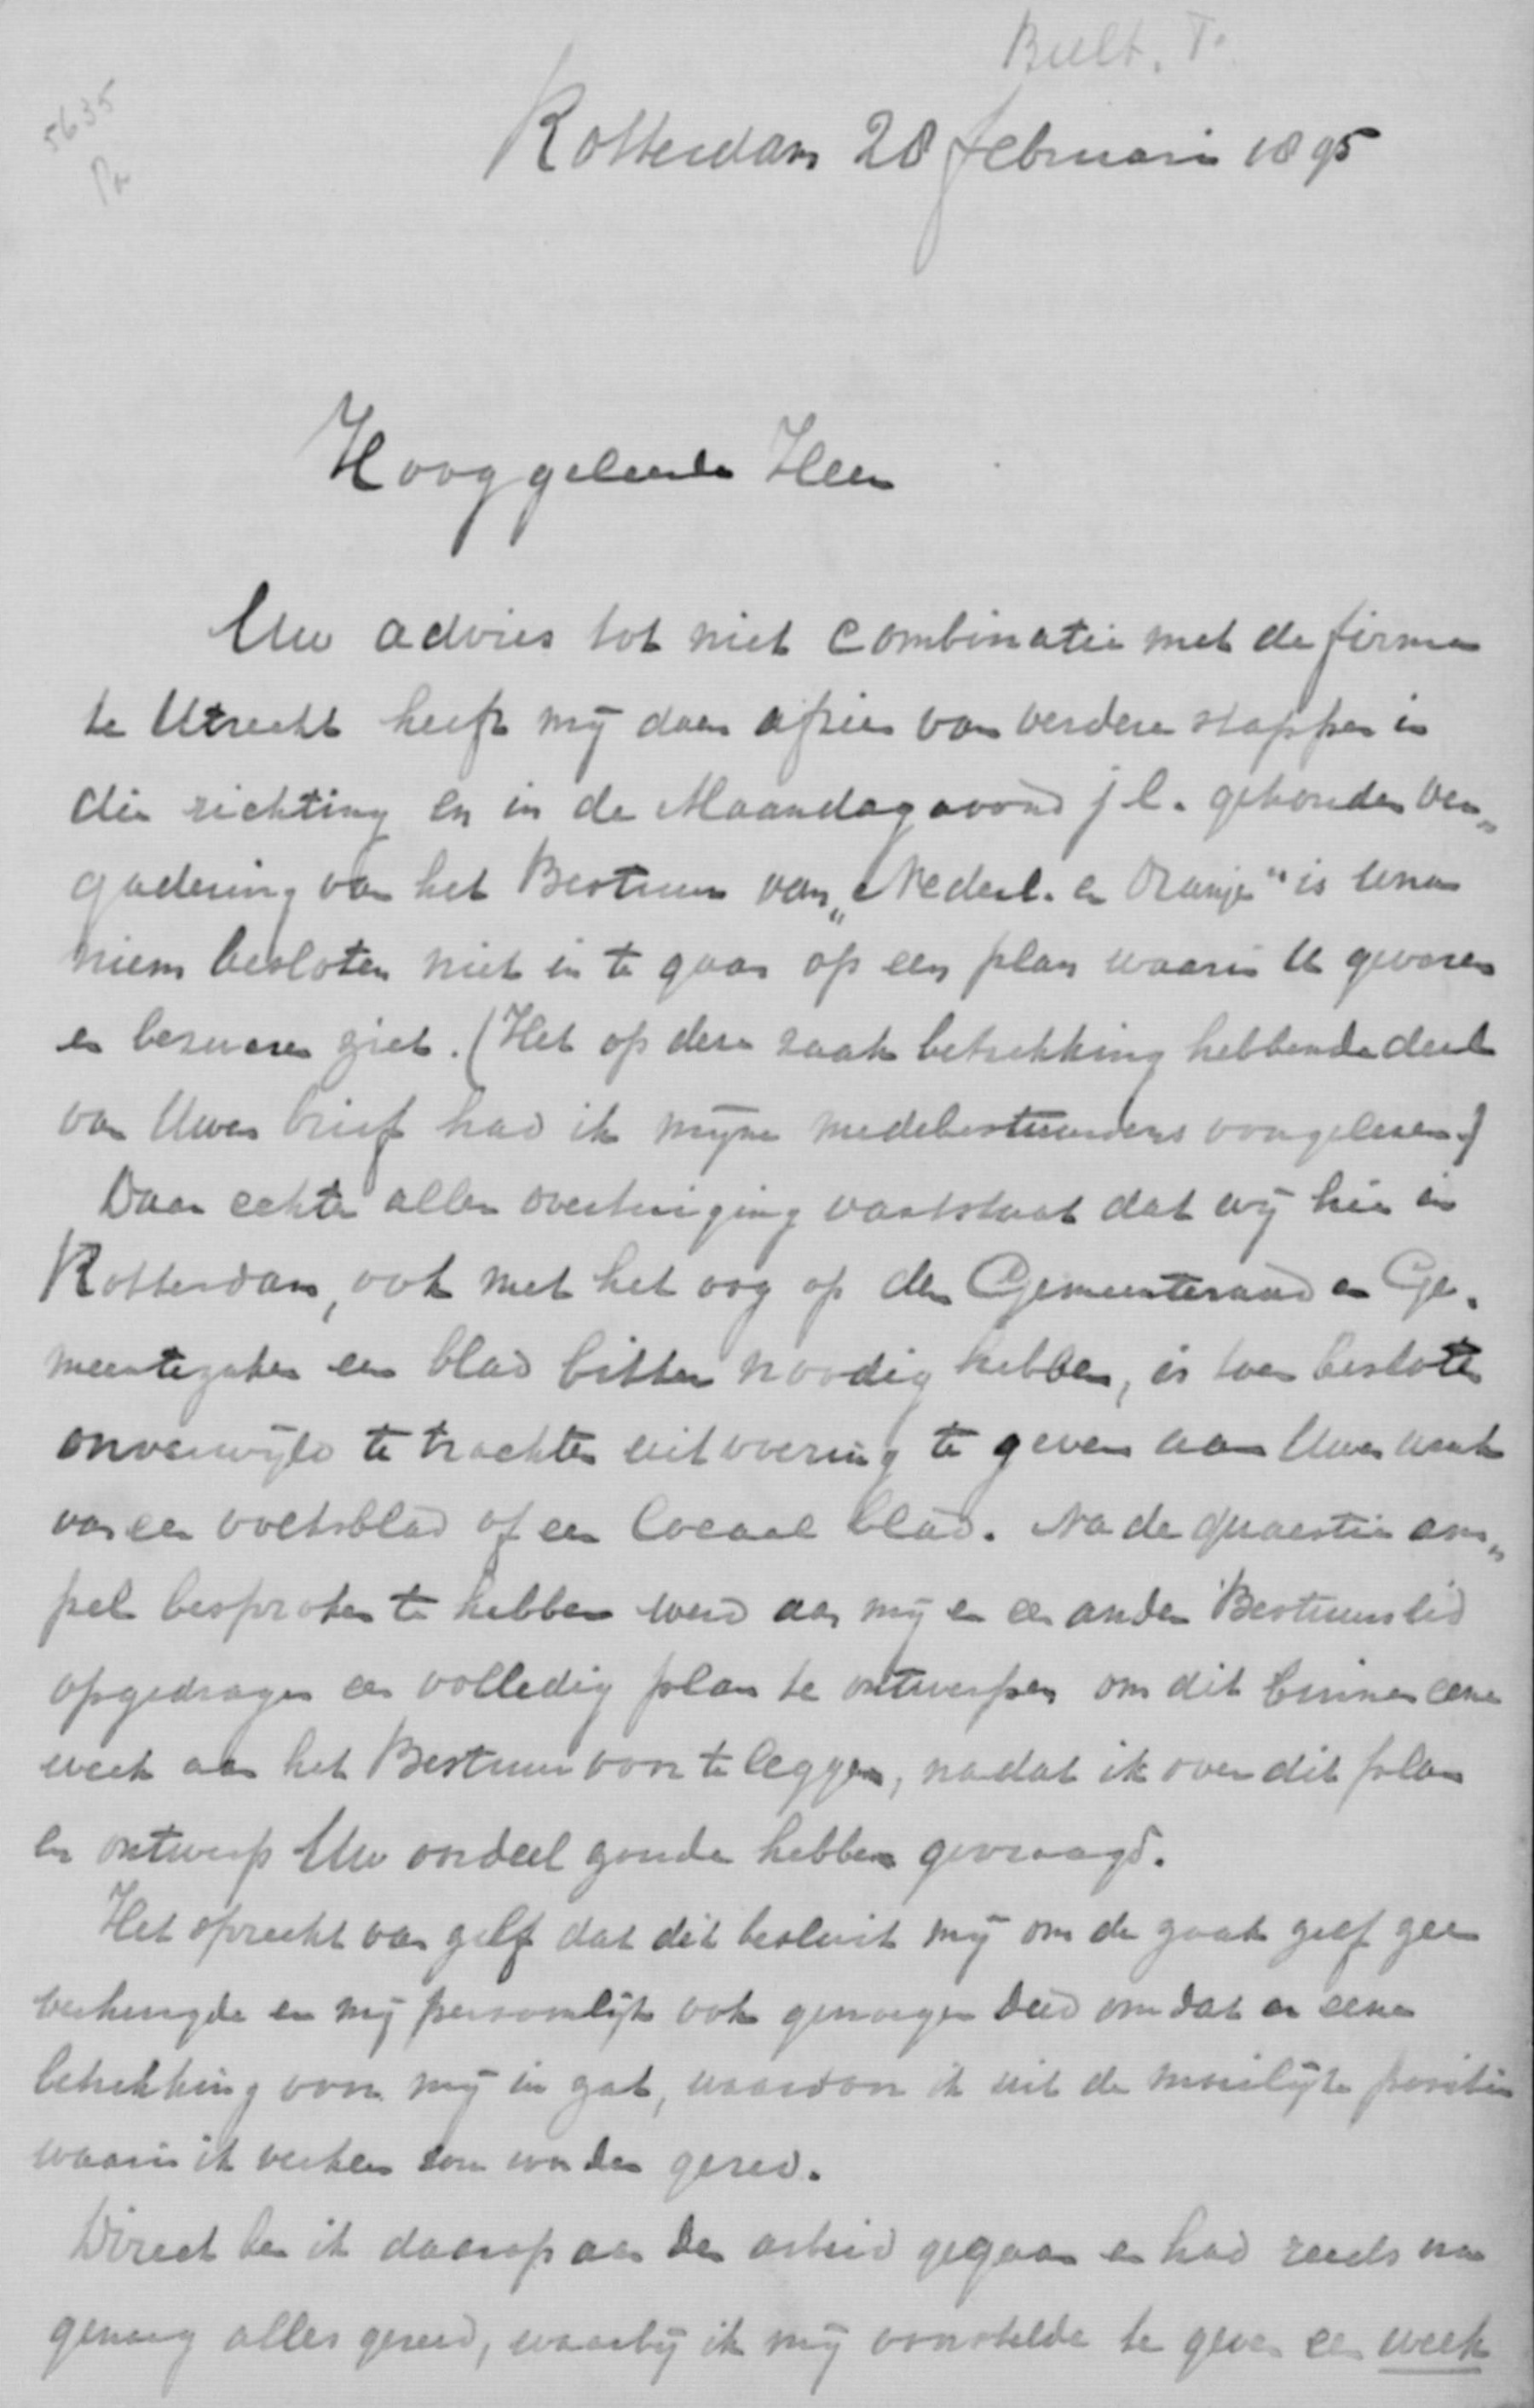 Bult. T.
5635
Pa
Rotterdam 28 februari 1895
Hooggeleerde Heer
Uw advies tot niet combinatie met de firma
te Utrecht heeft mij doen afzien van verdere stappen in
die richting en in de Maandagavond jl. gehouden ver„
gadering van het Bestuur van „Nederl. en Oranje" is una
niem besloten niet in te gaan op een plan waarin U gevaren
en bezwaren ziet. (Het op deze zaak betrekking hebbende deel
van Uwen brief had ik mijne medebestuurders voorgelezen.)
Daar echter aller overtuiging vaststaat dat wij hier in
Rotterdam, ook met het oog op den Gemeenteraad en Ge.
meentezaken een blad bitter noodig hebben, is toen besloten
onverwijld te trachten uitvoering te geven aan Uwen wenk
van een volksblad of een locaal blad. Na de quaestie am„
pel besproken te hebben werd aan mij en een ander Bestuurslid
opgedragen een volledig plan te ontwerpen om dit binnen eene
week aan het Bestuur voor te leggen, nadat ik over dit plan
en ontwerp Uw oordeel zoude hebben gevraagd.
Het spreekt van zelf dat dit besluit mij om de zaak zelf zeer
verheugde en mij persoonlijk ook genoegen deed omdat er eene
betrekking voor mij in zat, waardoor ik uit de moeilijke positie
waarin ik verkeer zou worden gered.
Direct ben ik daarop aan den arbeid gegaan en had reeds na
genoeg alles gereed, waarbij ik mij voorstelde te geven een week